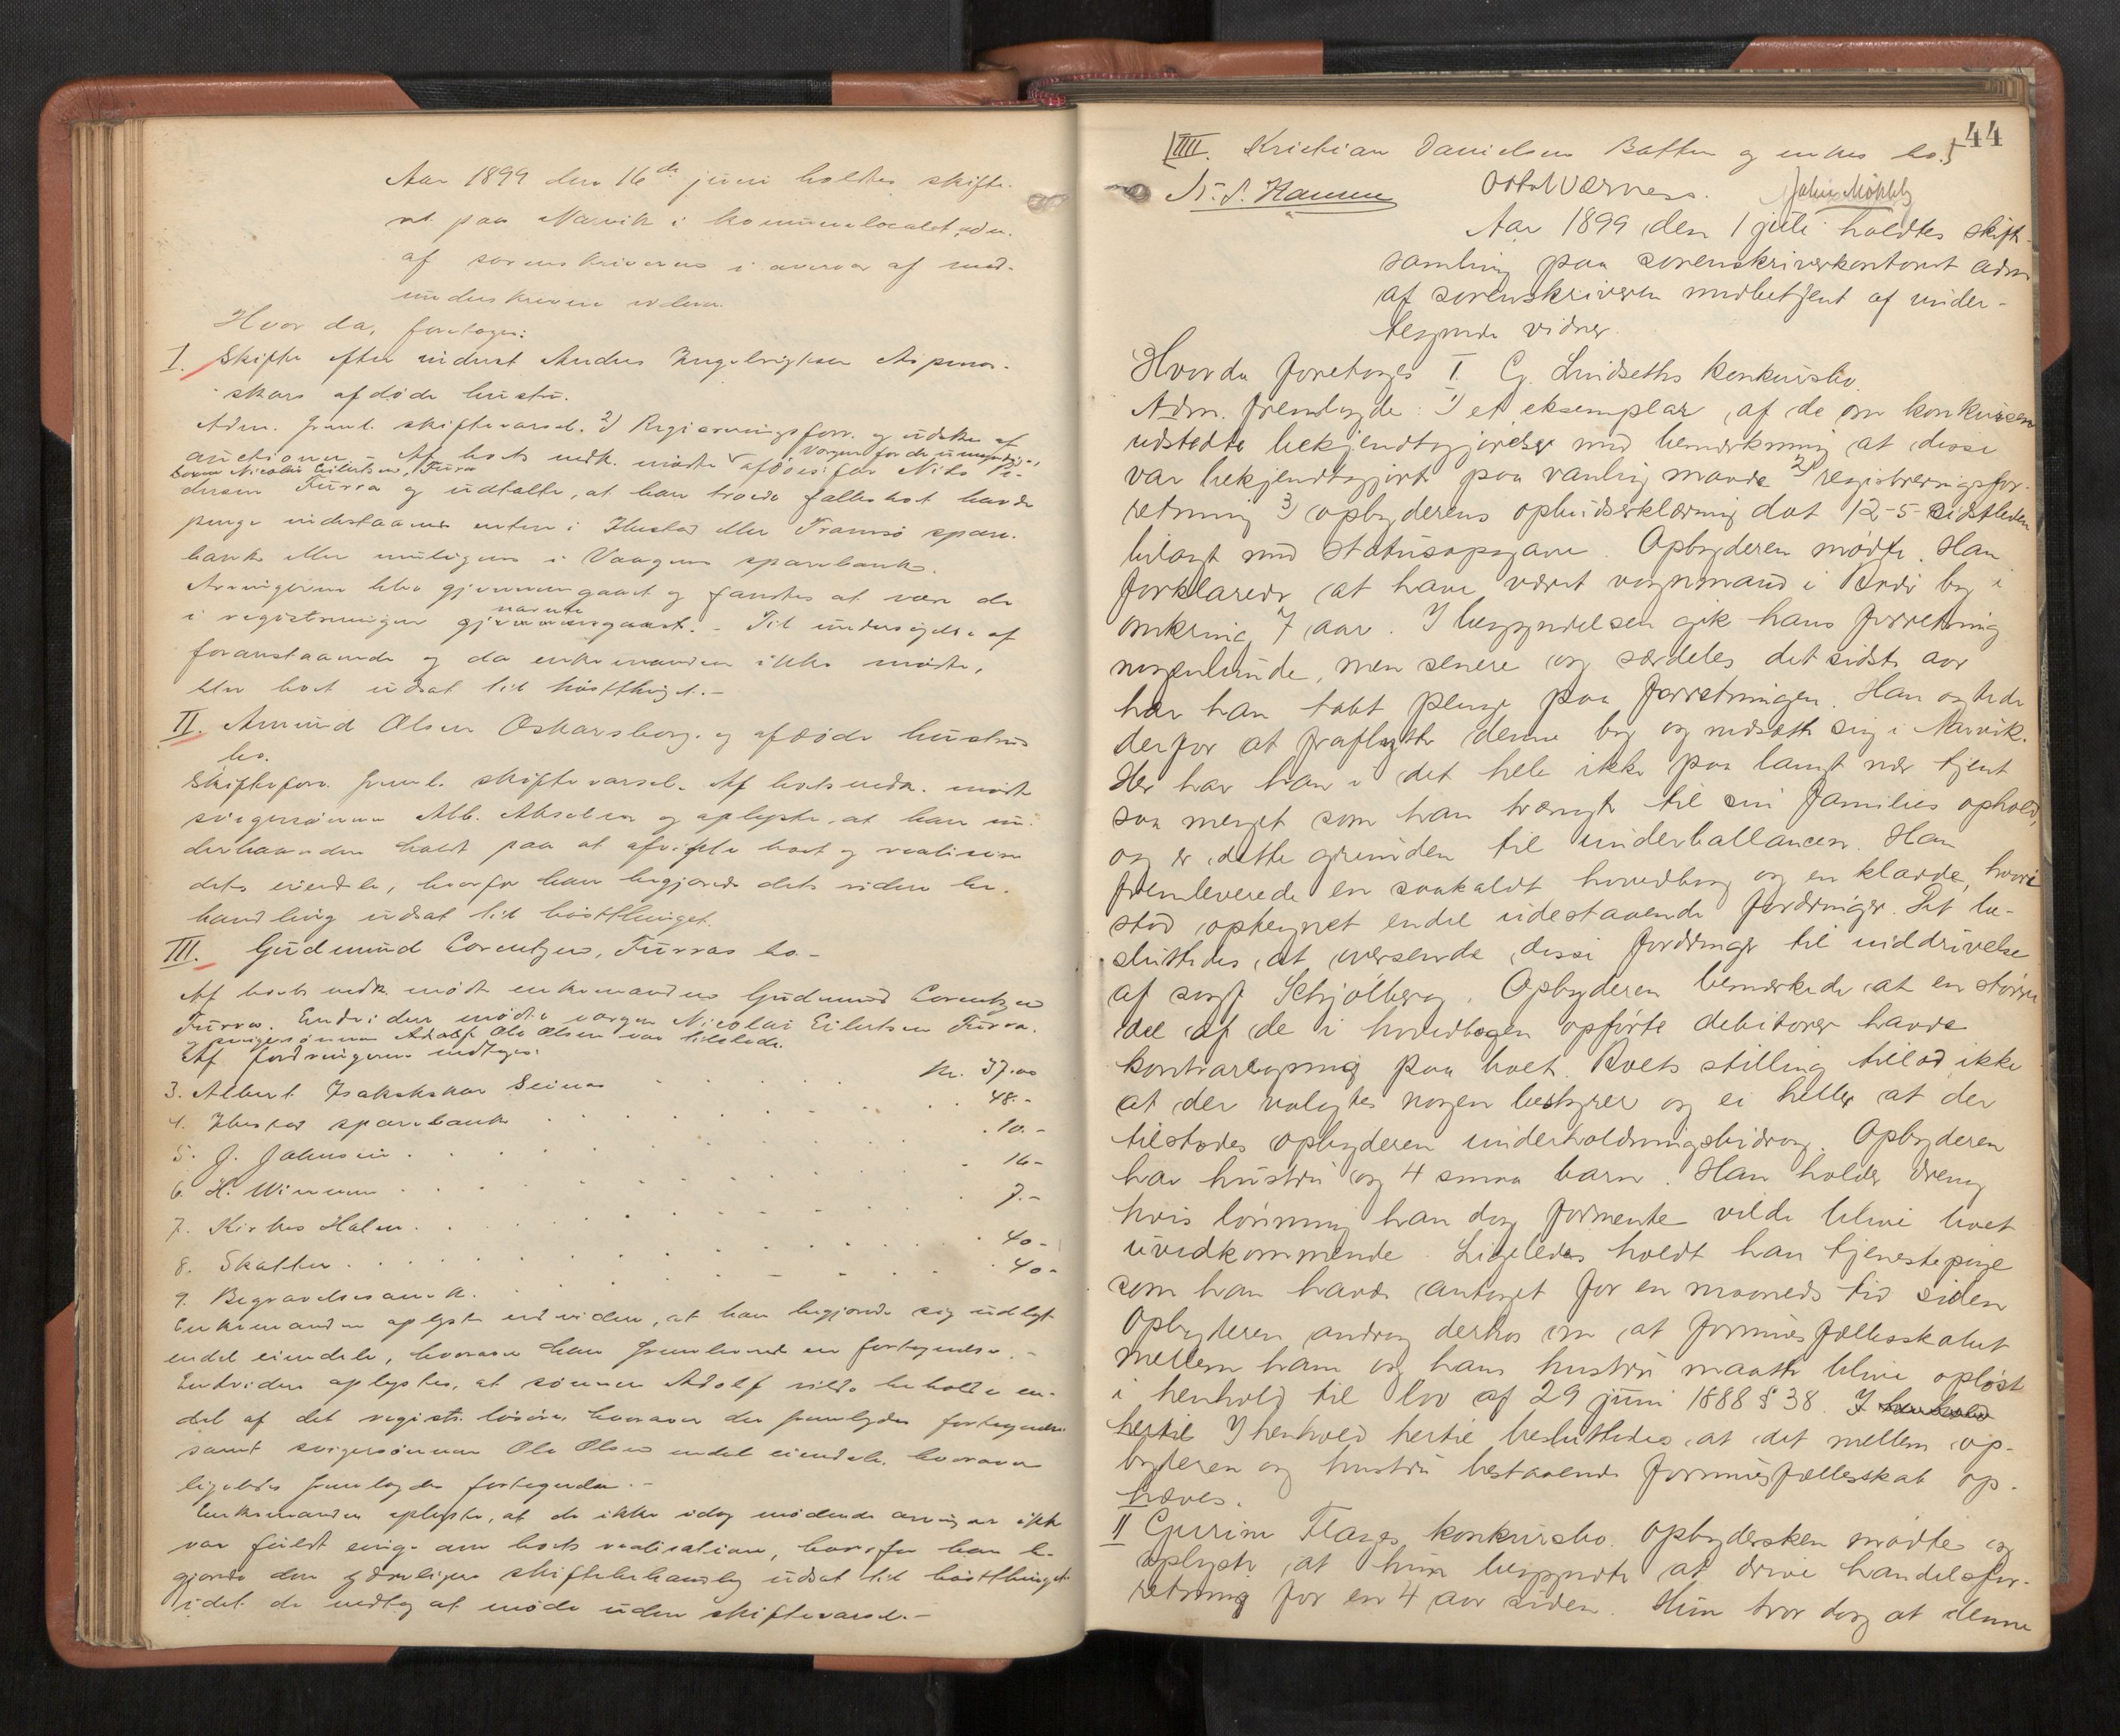 Aar 1899 den 16de juni holdtes skifte-
ret paa Narvik i kommunelocalet, adm.
af sorenskriveren i overvær af med-
underskrevne vidner.
Hvor da, foretoges:
I. Skifte efter inderst Anders Ingebrigtsen
skars afdøde hustru.
Adm. freml. skiftevarsel. 2) Regisreringsforr. og udskr. af
auctionen. – Af boets vedk. mødte værgen for de umyndige,
Nicolai Eilertsen, Furra afdødes far Nils Pe-
dersen Furra og udtalte, at han troede fællesboet havde
penge indestaaende enten i Ibestad eller Tromsø spare-
bank eller muligens i Vaagens sparebank.
Arvingerne blev gjennemgaaet og fandtes at være de
i registreringen nævnte. – Til undersøgelse af
foranstaaende og da enkemanden ikke mødte,
blev boet udsat til høstthinget. –
II. Amund Olsen Oskarsborg og afdøde hustrus
bo.
Skifteforv. freml. skiftevarsel. Af boets vedk. mødte
svigersønnen Alb. Absalon og oplyste, at han un-
derhaanden holdt paa at afvikle boet og realisere
dets eiendele, hvorfor han begjærede dets videre be-
handling udsat til høstthinget.
III. Gudmund Lorentzen, Furras bo. –
Af boets vedk. mødte enkemanden Gudmund Lorentzen
Furra. Endvidere mødte værgen Nicolai Eilertsen Furra.
svigersønnen Adolf Ole Olsen var tilstede.
Af fordringerne vedtoges:
3. Albert Isakskar Seines Kr. 37.00
4. Ibestad sparebank 48.-
5. J. Johnsen 10.-
6. H. Winum 16-
7. Kirkes Halvn. 7.-
8. Skatter 40-
9. Begravelsesomk. 40-
Enkemanden oplyste endvidere, at han begjærede sig udlagt
endel eiendele, hvorover han fremleverede en fortegnelse. –
Endvidere oplystes, at sønnen Adolf vilde beholde en-
del af det registr. løsøre, hvorover der fremlagdes fortegnelse
samt svigersønnen Ole Olsen endel eiendele, hvorover
ligeledes fremlagdes fortegnelse. –
Enkemanden oplyste, at de ikke idag mødende arvinger ikke
var fuldt enige om boets realisation, hvorfor han be-
gjærede den yderligere skiftebehandling udsat til høstthinget
idet de vedtog at møde uden skiftevarsel. –
44
[IIII. Kristian Danielsen Batten og enkes bo.]
N. P. Hansen O Værnes. Johs Møkleby
Aar 1899 den 1 juli holdtes skift-
samling paa sorenskriverkontoret adm
af sorenskriveren medbetjent af under-
tegnede vidner.
Hvorda foretoges I. C. Lindseths konkursbo.
Adm. fremlagde: 1) et eksemplar af de om konkursen
udstedte bekjendtgjørelser med bemærkning at disse
var bekjendtgjort paa vanlig maade 2) registreringsfor-
retning 3) opbyderens opbudserklæring dat 12-5 sidstleden
bilagt med statusopgave. Opbyderen mødte. Han
forklarede at have været vognmand i Bodø by i
omkring 7 aar. I begyndelsen gik hans forretning
nogenlunde, men senere og særdeles det sidste aar
har han tabt penge paa forretningen. Han agtede
derfor at fraflytte denne by og nedsætte sig i Narvik.
Her har han i det hele ikke paa langt nær tjent
saa meget som han trængte til sin families ophold,
og er dette grunden til underballancen. Han
fremleverede en saakaldt hovedbog og en kladde, hvori
stod optegnet endel udestaaende fordringer. Det be-
sluttedes at oversende disse fordringer til inddrivelse
af sagf Schjølberg. Opbyderen bemærkede at en større
del af de i hovedbogen opførte debitorer havde
kontraregning paa boet. Boets stilling tillod ikke
at der valgtes nogen bestyrer og ei heller at der
tilstodes opbyderen underholdningsbidrag. Opbyderen
har hustru og 4 smaa barn. Han holder dreng
hvis lønning han dog formente vilde blive boet
uvedkommende. Ligeledes holdt han tjenestepige
som han havde antaget for en maaneds tid siden
Opbyderen androg derhos om at formuesfællesskabet
mellem ham og hans hustru maatte blive opløst
i henhold til lov af 29 juni 1888 § 38. I henhold
hertil I henhold hertil besluttedes at det mellem op-
byderen og hustru bestaaende formuesfællesskab op-
hæves.
II Gurine Flages konkursbo. Opbydersken mødte og
oplyste at hun begyndte at drive handelsfor-
retning for en 4 aar siden. Hun tror dog at denne